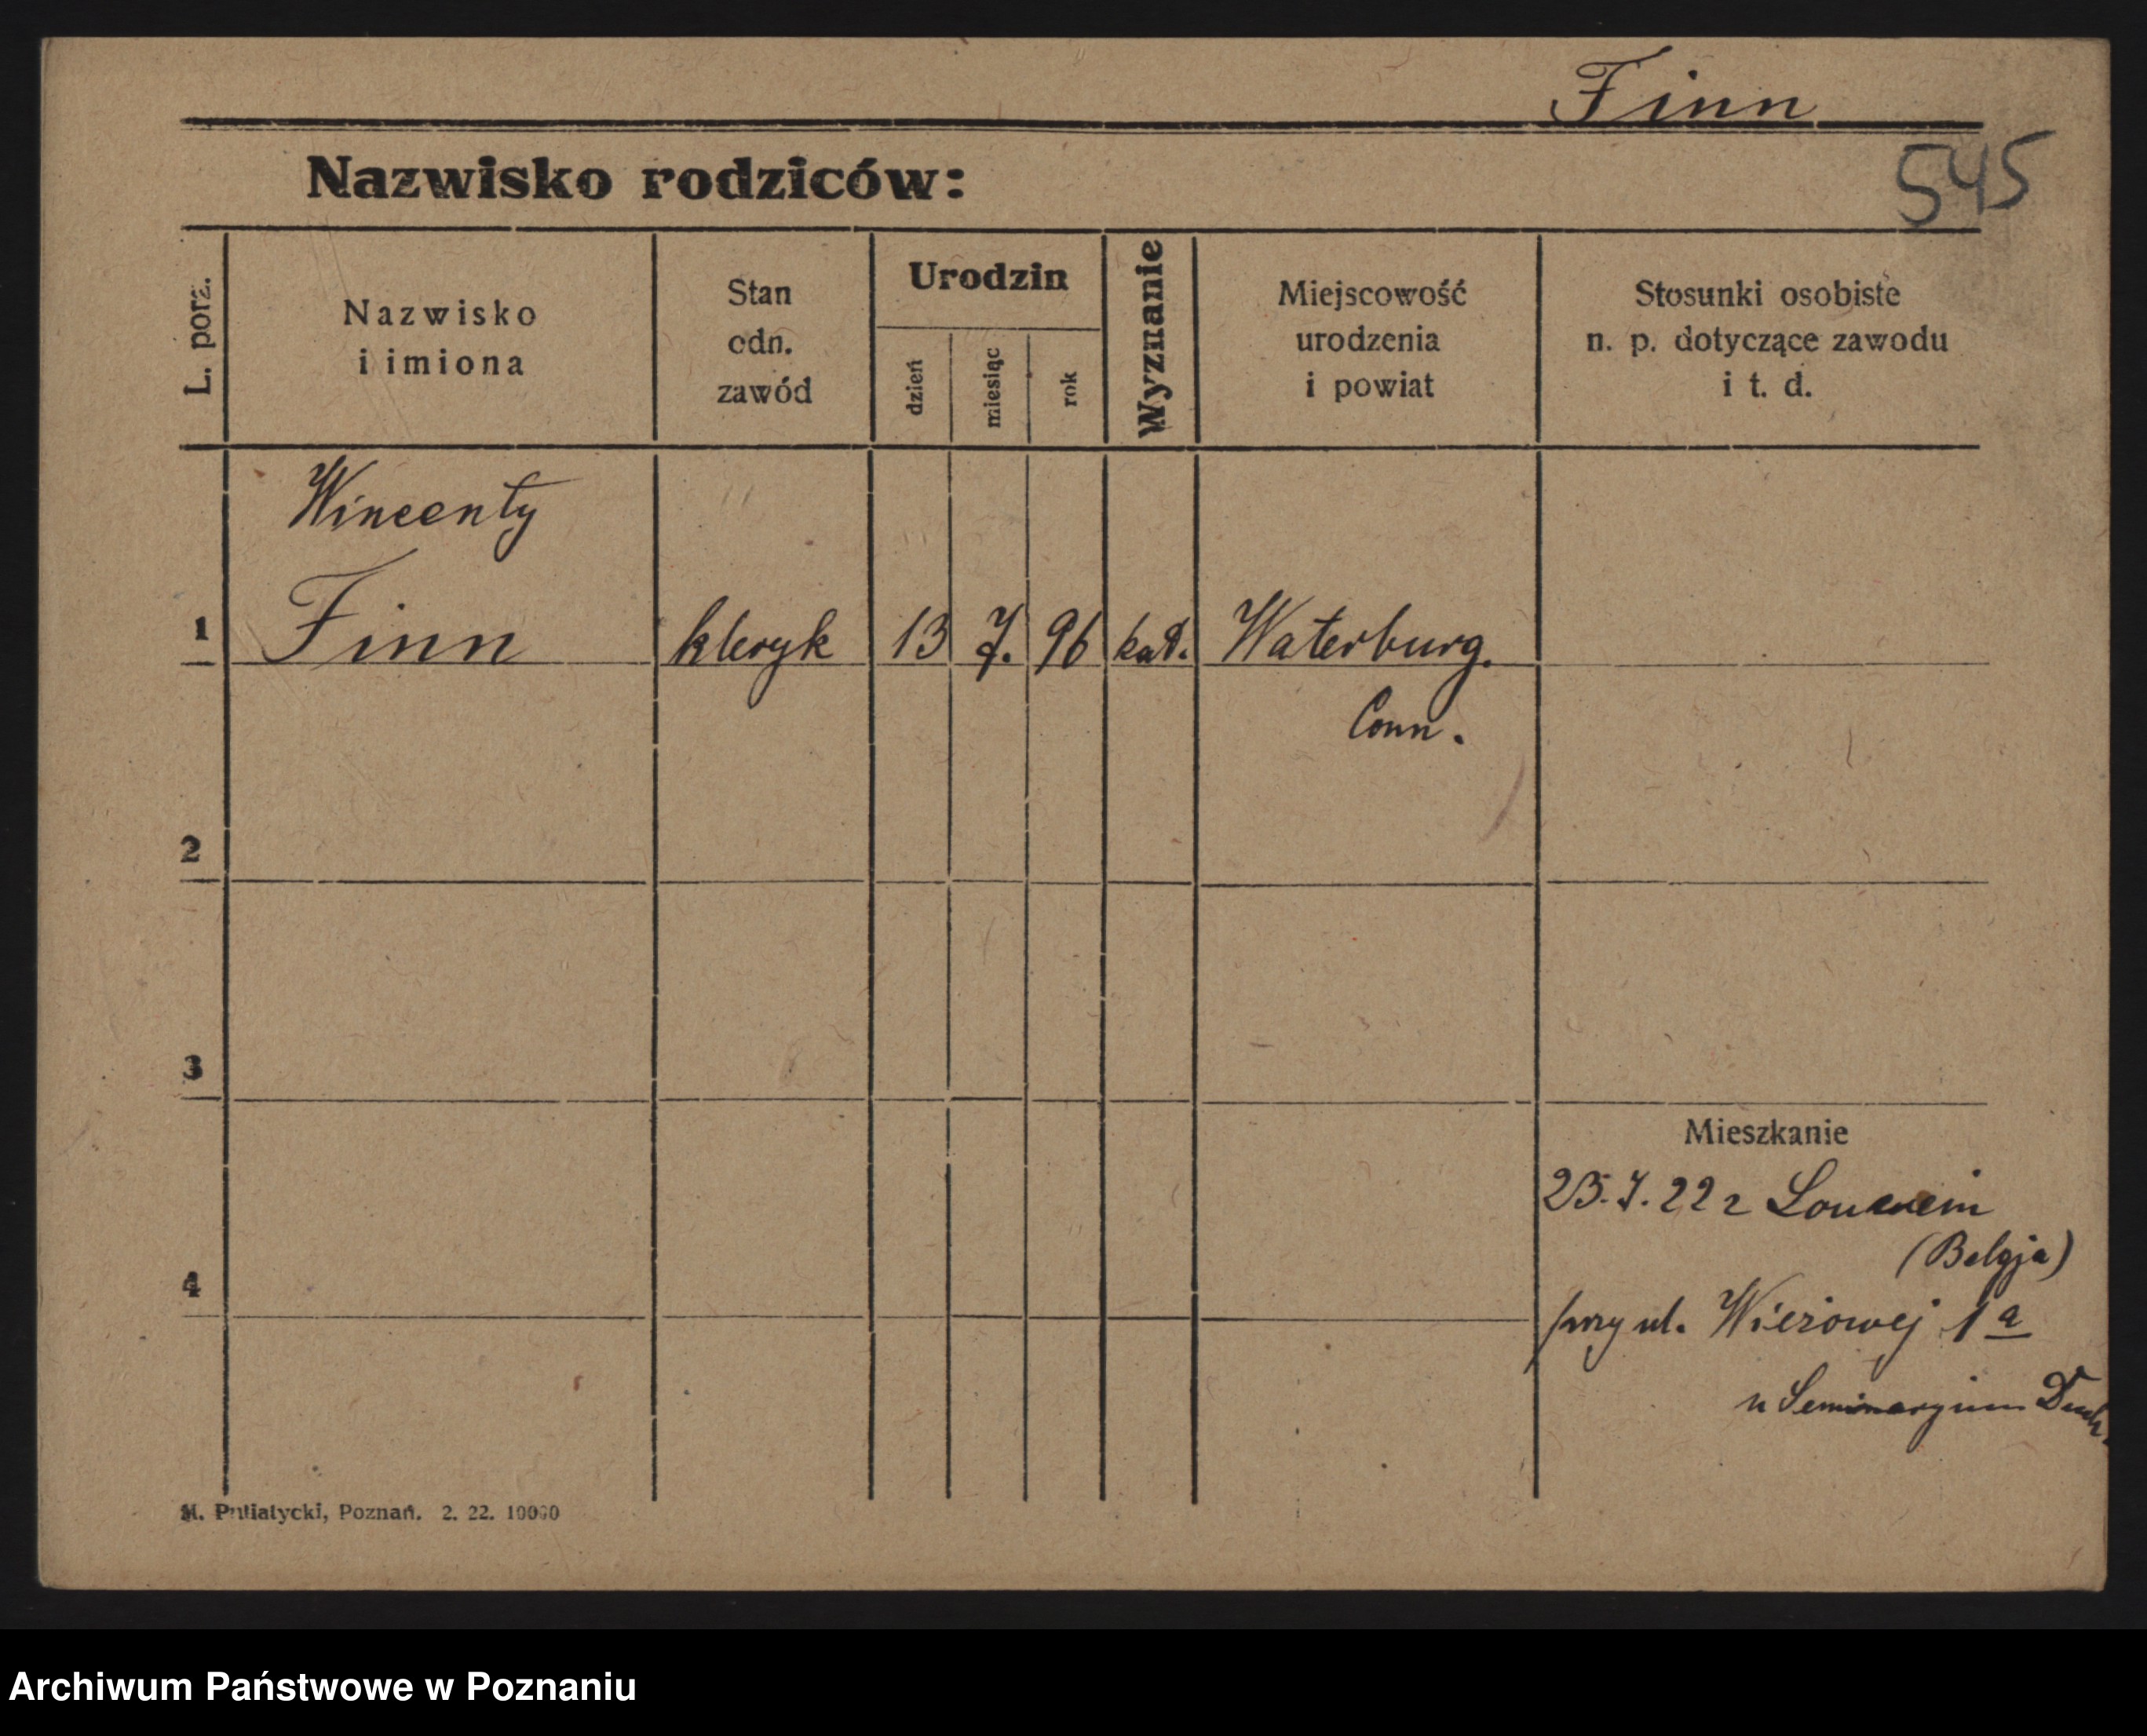 Finn
545
Nazwisko rodziców:
L. porz.
Nazwisko
i imiona
Stan
odn.
zawód
Urodzin
dzień
miesiąc
rok
Wyznanie
Miejscowość
urodzenia
i powiat
Stosunki osobiste
n. p. dotyczące zawodu
i t. d.
Wincenty
1 Finn kleryk 13 7. 96 kat. Waterburg.
Conn.
2
3
Mieszkanie
23.7.22 z
(Belgja)
4
przy ul. Wieżowej 1a
u Seminaryium Duch.
M. Putiatycki, Poznań. 2. 22. 10000
Archiwum Państwowe w Poznaniu